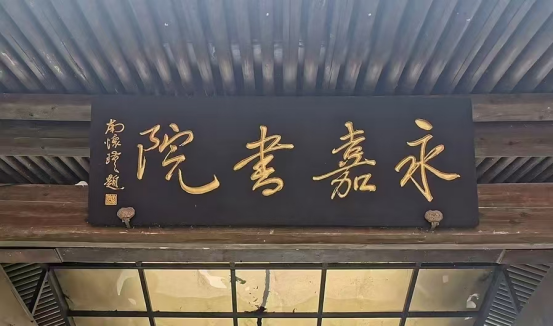 永嘉書院
南懷瑾題